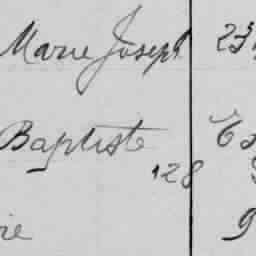 Marie Joseph 23
Baptiste
128
9